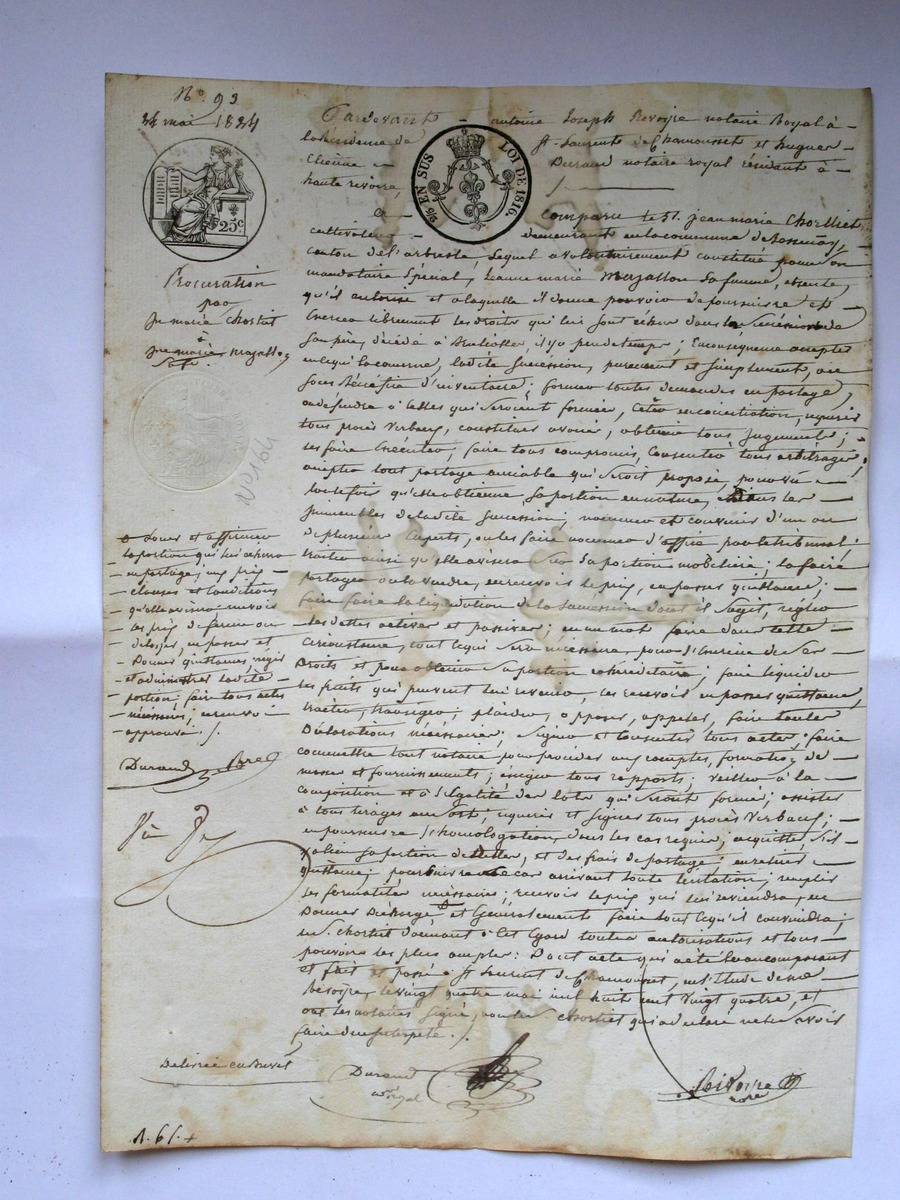 N.o 93
24 mai 1824
25c
2/10 EN SUS LOI DE 1816
Pardevant antoine Joseph Revoire notaire Royal à
la Residence de St. Laurent de Chamousset et hugues
Etienne Durand notaire royal résidant à
haute revoire,
a Comparu le Sr. jean marie
cultivateur demeurant en la commune de
canton de l'arbresle, Lequel a volontairement constitué pour son
mandataire Spécial, jeanne marie Mazallon sa femme, absente,
qu'il autorise et a laquelle il donne pouvoir de poursuivre et
librement les droits qui lui sont échus dans la succession de
son père, décédé à il y a peu de temps; En conséquence accepter
en ce qui la concerne, ladite succession, purement et simplement, ou
sous bénéfice d'inventaire; former toutes demandes en partage,
ou défendre à celles qui seroient formées, citer en conciliation, requérir
tous procès verbaux, constituer avoué, obtenir tous jugements;
les faire exécuter, faire tous compromis, consentir tous arbitrages;
accepter tout partage amiable qui seroit proposé, pourvu
toutefois qu'elle obtienne sa portion en nature, dans les
immeubles de ladite succession; nommer et convenir d'un ou
de plusieurs experts, ou les faire nommer d'office par le tribunal;
traiter ainsi qu'elle avisera sa portion mobilière; la faire
partager ou la vendre, en recevoir le prix, en passer quittance;
faire faire la liquidation de la succession dont il s'agit, régler
les dettes actives et passives; en un mot faire dans cette
circonstance, tout ce qui sera nécessaire, pour l'exercice de ses
droits et pour obtenir sa portion héréditaire, faire liquider
les fruits qui peuvent lui revenir, les recevoir en passer quittance,
traiter, transiger, plaider, opposer, appeler, faire toutes
Déclarations nécessaires, signer et consentir tous actes, faire
commettre tout notaire pour procéder aux comptes, formation de
masse et fournissements; exiger tous rapports; veiller à la
composition et à l'égalité des lots qui seront formés; assister
à tous tirages au sort, requérir et signer tous procès verbaux;
en poursuivre l'homologation, dans les cas requis; acquitter, s'il
y a lieu sa portion de dettes, et des frais de partage; en retirer
quittance; poursuivre le cas arrivant toute licitation; remplir
les formalités nécessaires; recevoir le prix qui lui reviendra, en
Donner Décharge Et Généralement faire tout ce qu'il conviendra;
led. S. donnant à cet égard toutes autorisations et tous
pouvoirs les plus amples: Dont acte qui a été lu au comparant
et fait et passé à St. Laurent de Chamousset, en l'étude de me
Revoire, le vingt quatre mai mil huit cent vingt quatre, et
ont les notaires signé, non led. qui a déclaré ne le savoir
faire de ce interpellé ./.
Procuration
par
Jn marie
à
jne marie mazallon
sa fe.
N° 164
Louer et affermer
la portion qui lui écherra
en partage, aux prix,
clauses et conditions
qu'elle avisera recevoir
les prix de ferme ou
de loyer, en passer et
Donner quittances, régir
et administrer ladite
portion; faire tous actes
nécessaires; en renvoi
approuvé ./.
Durand Revoire
Délivrée en Brevet
Durand
nre royal
Revoire
nore